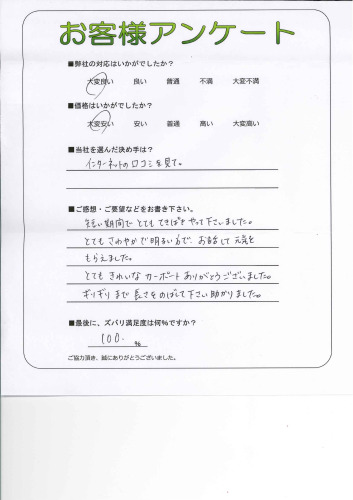 お客様アンケート
■弊社の対応はいかがでしたか?
大変良い 良い 普通 不満 大変不満
■価格はいかがでしたか?
大変安い 安い 普通 高い 大変高い
■当社を選んだ決め手は?
インターネットの口コミを見て。
■ご感想・ご要望などをお書き下さい。
短い期間でとてもてきぱきやって下さいました。
とてもさわやかで明るい方で、お話して元気を
もらえました。
とてもきれいなカーポートありがとうございました。
ギリギリまで長さをのばして下さい助かりました。
■最後に、ズバリ満足度は何%ですか?
100. %
ご協力頂き、誠にありがとうございました。